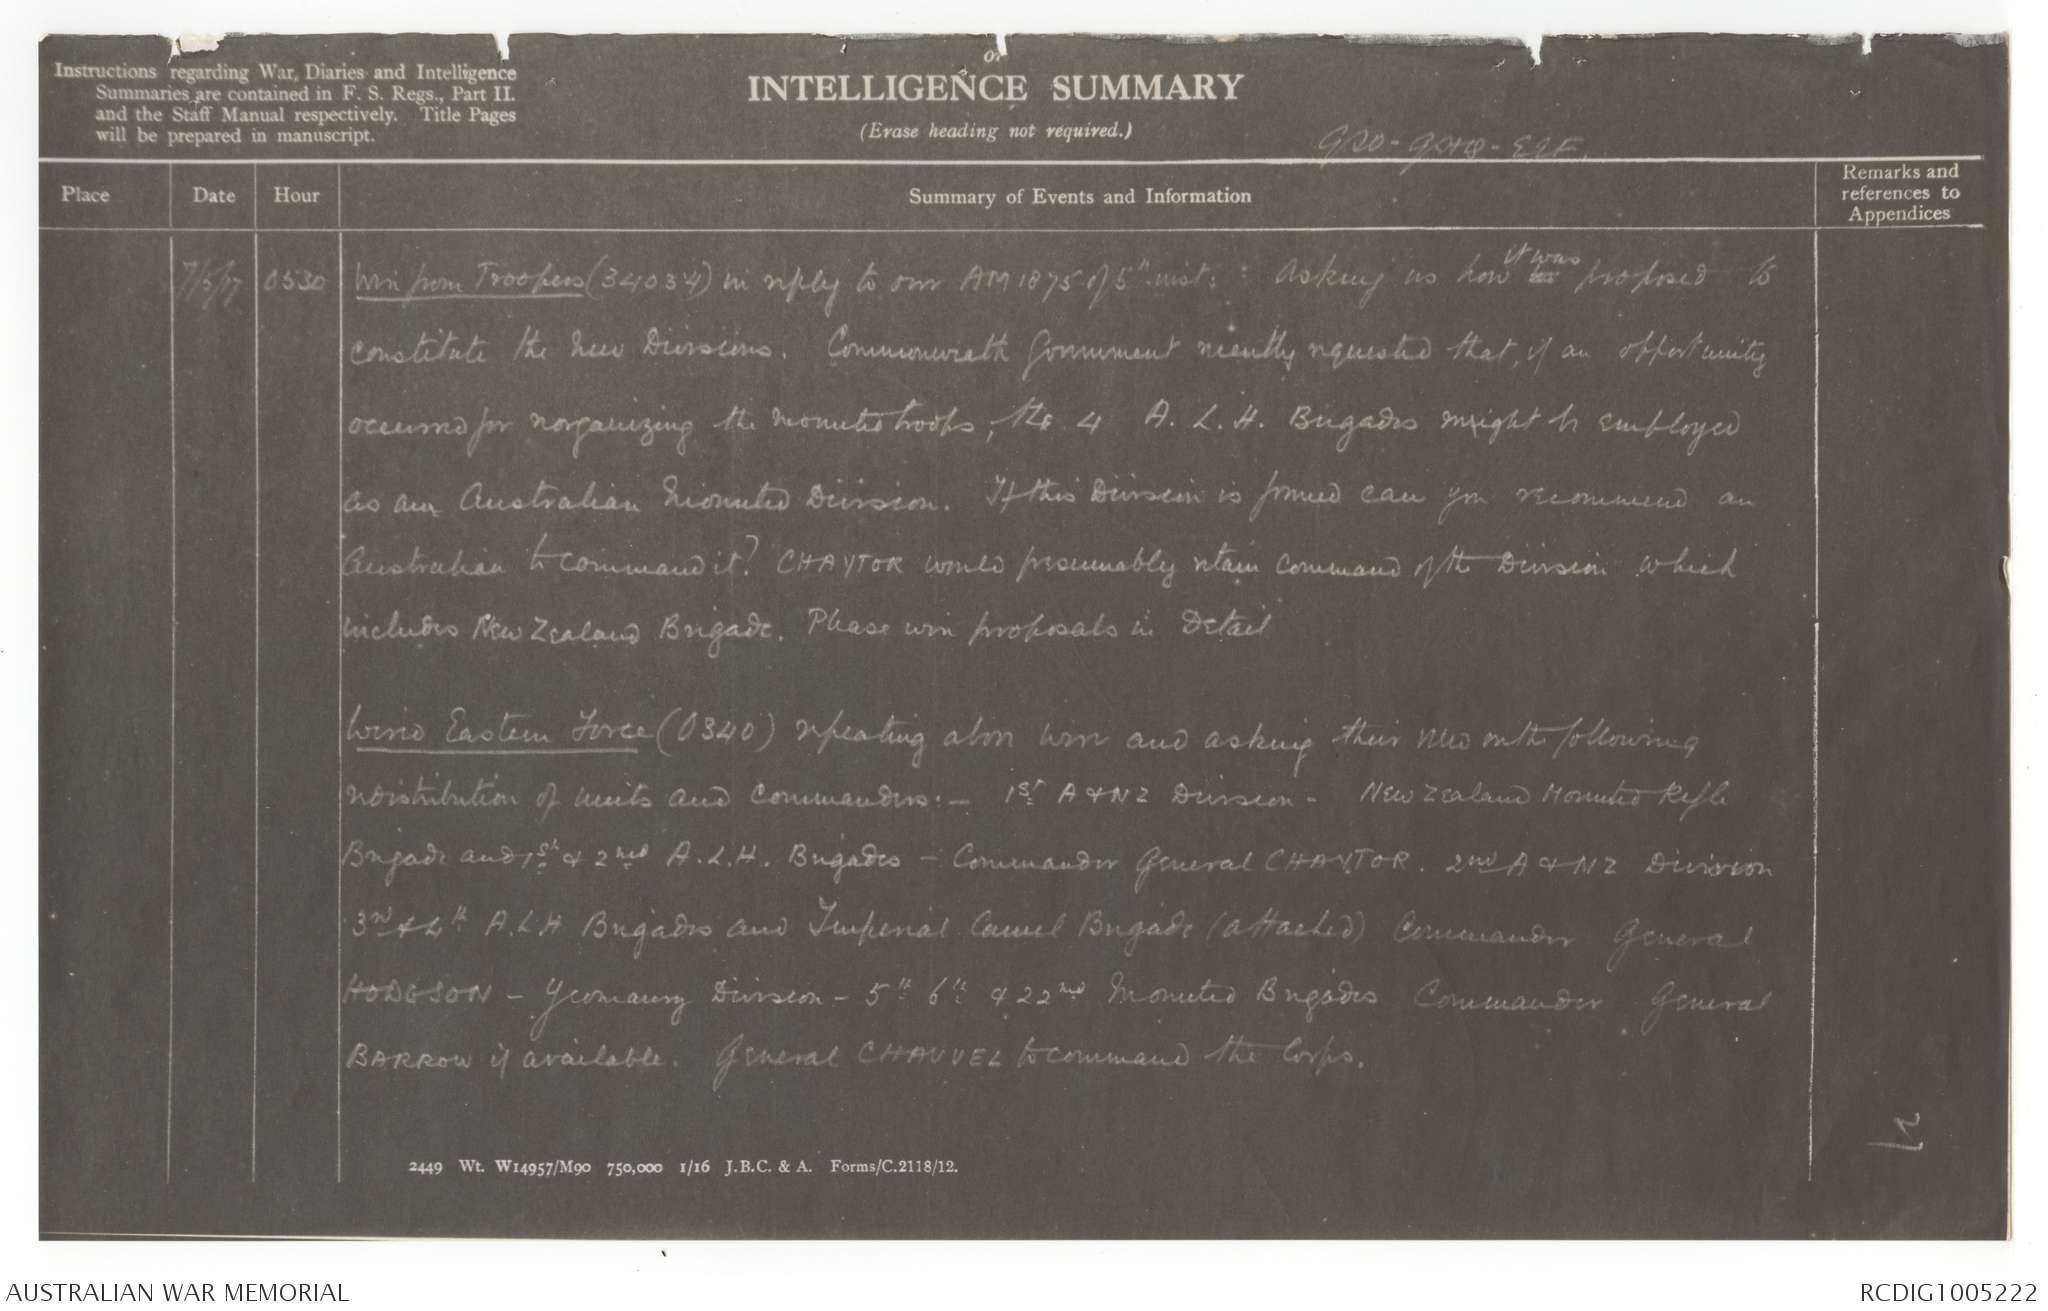 or
Instructions regarding War Diaries and Intelligence
Summaries are contained in F. S. Regs., Part II.
and the Staff Manual respectively. Title Pages
will be prepared in manuscript.
INTELLIGENCE SUMMARY
(Erase heading not required.)
GSO - GHQ - EEF.
Place
Date
Hour
Summary of Events and Information
Remarks and
references to
Appendices
0530
Wire from Troopers (34034) in reply to our AM 1875 of 5th inst: asking us how it was proposed to
constitute the new Divisions. Commonwealth Government recently requested that, if an opportunity
occurred for reorganizing the mounted troops, the 4 A. L. H. Brigades might be employed
as an Australian Mounted Division. If this Division is formed can you recommend an
Australian to command it? CHAYTOR would presumably retain command of the Division which
includes New Zealand Brigade. Please wire proposals in Detail
Wired Eastern Force (O340) repeating above wire and asking their view on the following
redistribution of units and commanders:- 1st A & NZ Division - New Zealand Mounted Rifle
Brigade and 1st & 2nd A.L.H. Brigades - Commander General CHAYTOR. 2nd A & NZ Division
3rd & 4th A.L.H Brigades and Imperial Camel Brigade (attached) Commander General
HODGSON - Yeomanry Division - 5th 6th & 22nd Mounted Brigades Commander General
BARROW if available. General CHAUVEL to command the Corps.
2449 Wt. W14957/M90 750,000 1/16 J.B.C. & A. Forms/C.2118/12.
AUSTRALIAN WAR MEMORIAL
RCDIG1005222